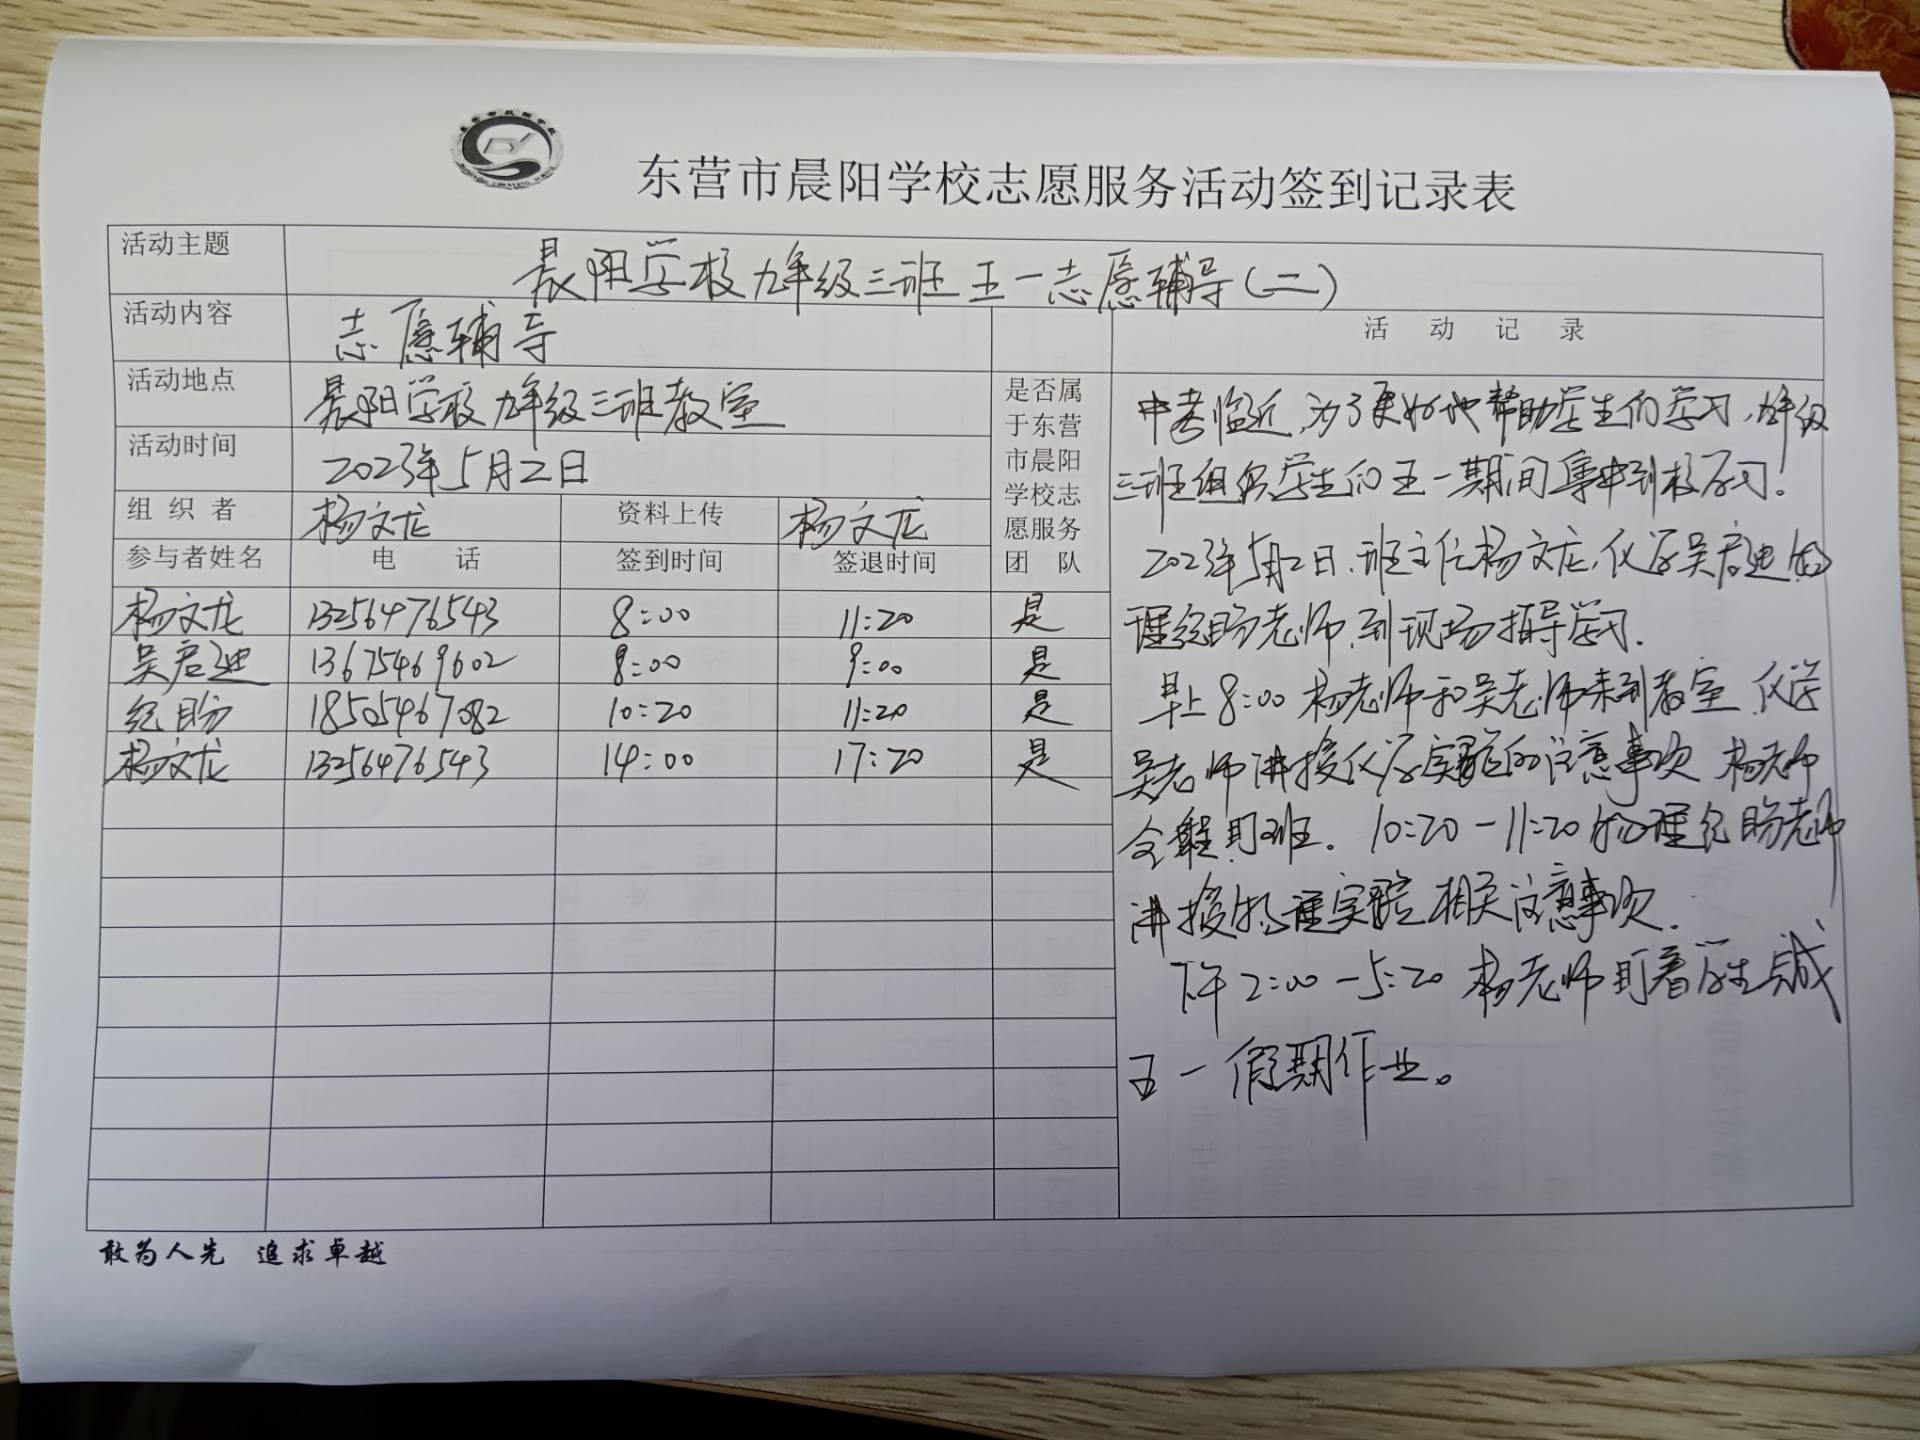 东营市晨阳学校志愿服务活动签到记录表
活动主题 晨阳学校九年级三班五一志愿辅导(二)
活动内容 志愿辅导
活动地点 晨阳学校九年级三班教室
活动时间 2023年5月2日
组织者 杨文龙 资料上传 杨文龙
参与者姓名 电话 签到时间 签退时间
是否属
于东营
市晨阳
学校志
愿服务
团队
杨文龙 13256476543 8:00 11:20 是
吴君迪 13675469602 8:00 9:00 是
纪盼 18505467082 10:20 11:20 是
杨文龙 13256476543 14:00 17:20 是
活动记录
中考临近,为了更好地帮助学生们学习,九年级
三班组织学生们五一期间集中到校学习!
2023年5月2日,班主任杨文龙,化学吴君迪,物
理纪盼老师,到现场指导学习.
早上8:00杨老师和吴老师来到教室,化学
吴老师讲授化学实验的注意事项 杨老师
全程盯班. 10:20-11:20物理纪盼老师
讲授物理实验相关注意事项.
下午2:00-5:20杨老师盯着学生完成
五一假期作业。
敢为人先 追求卓越